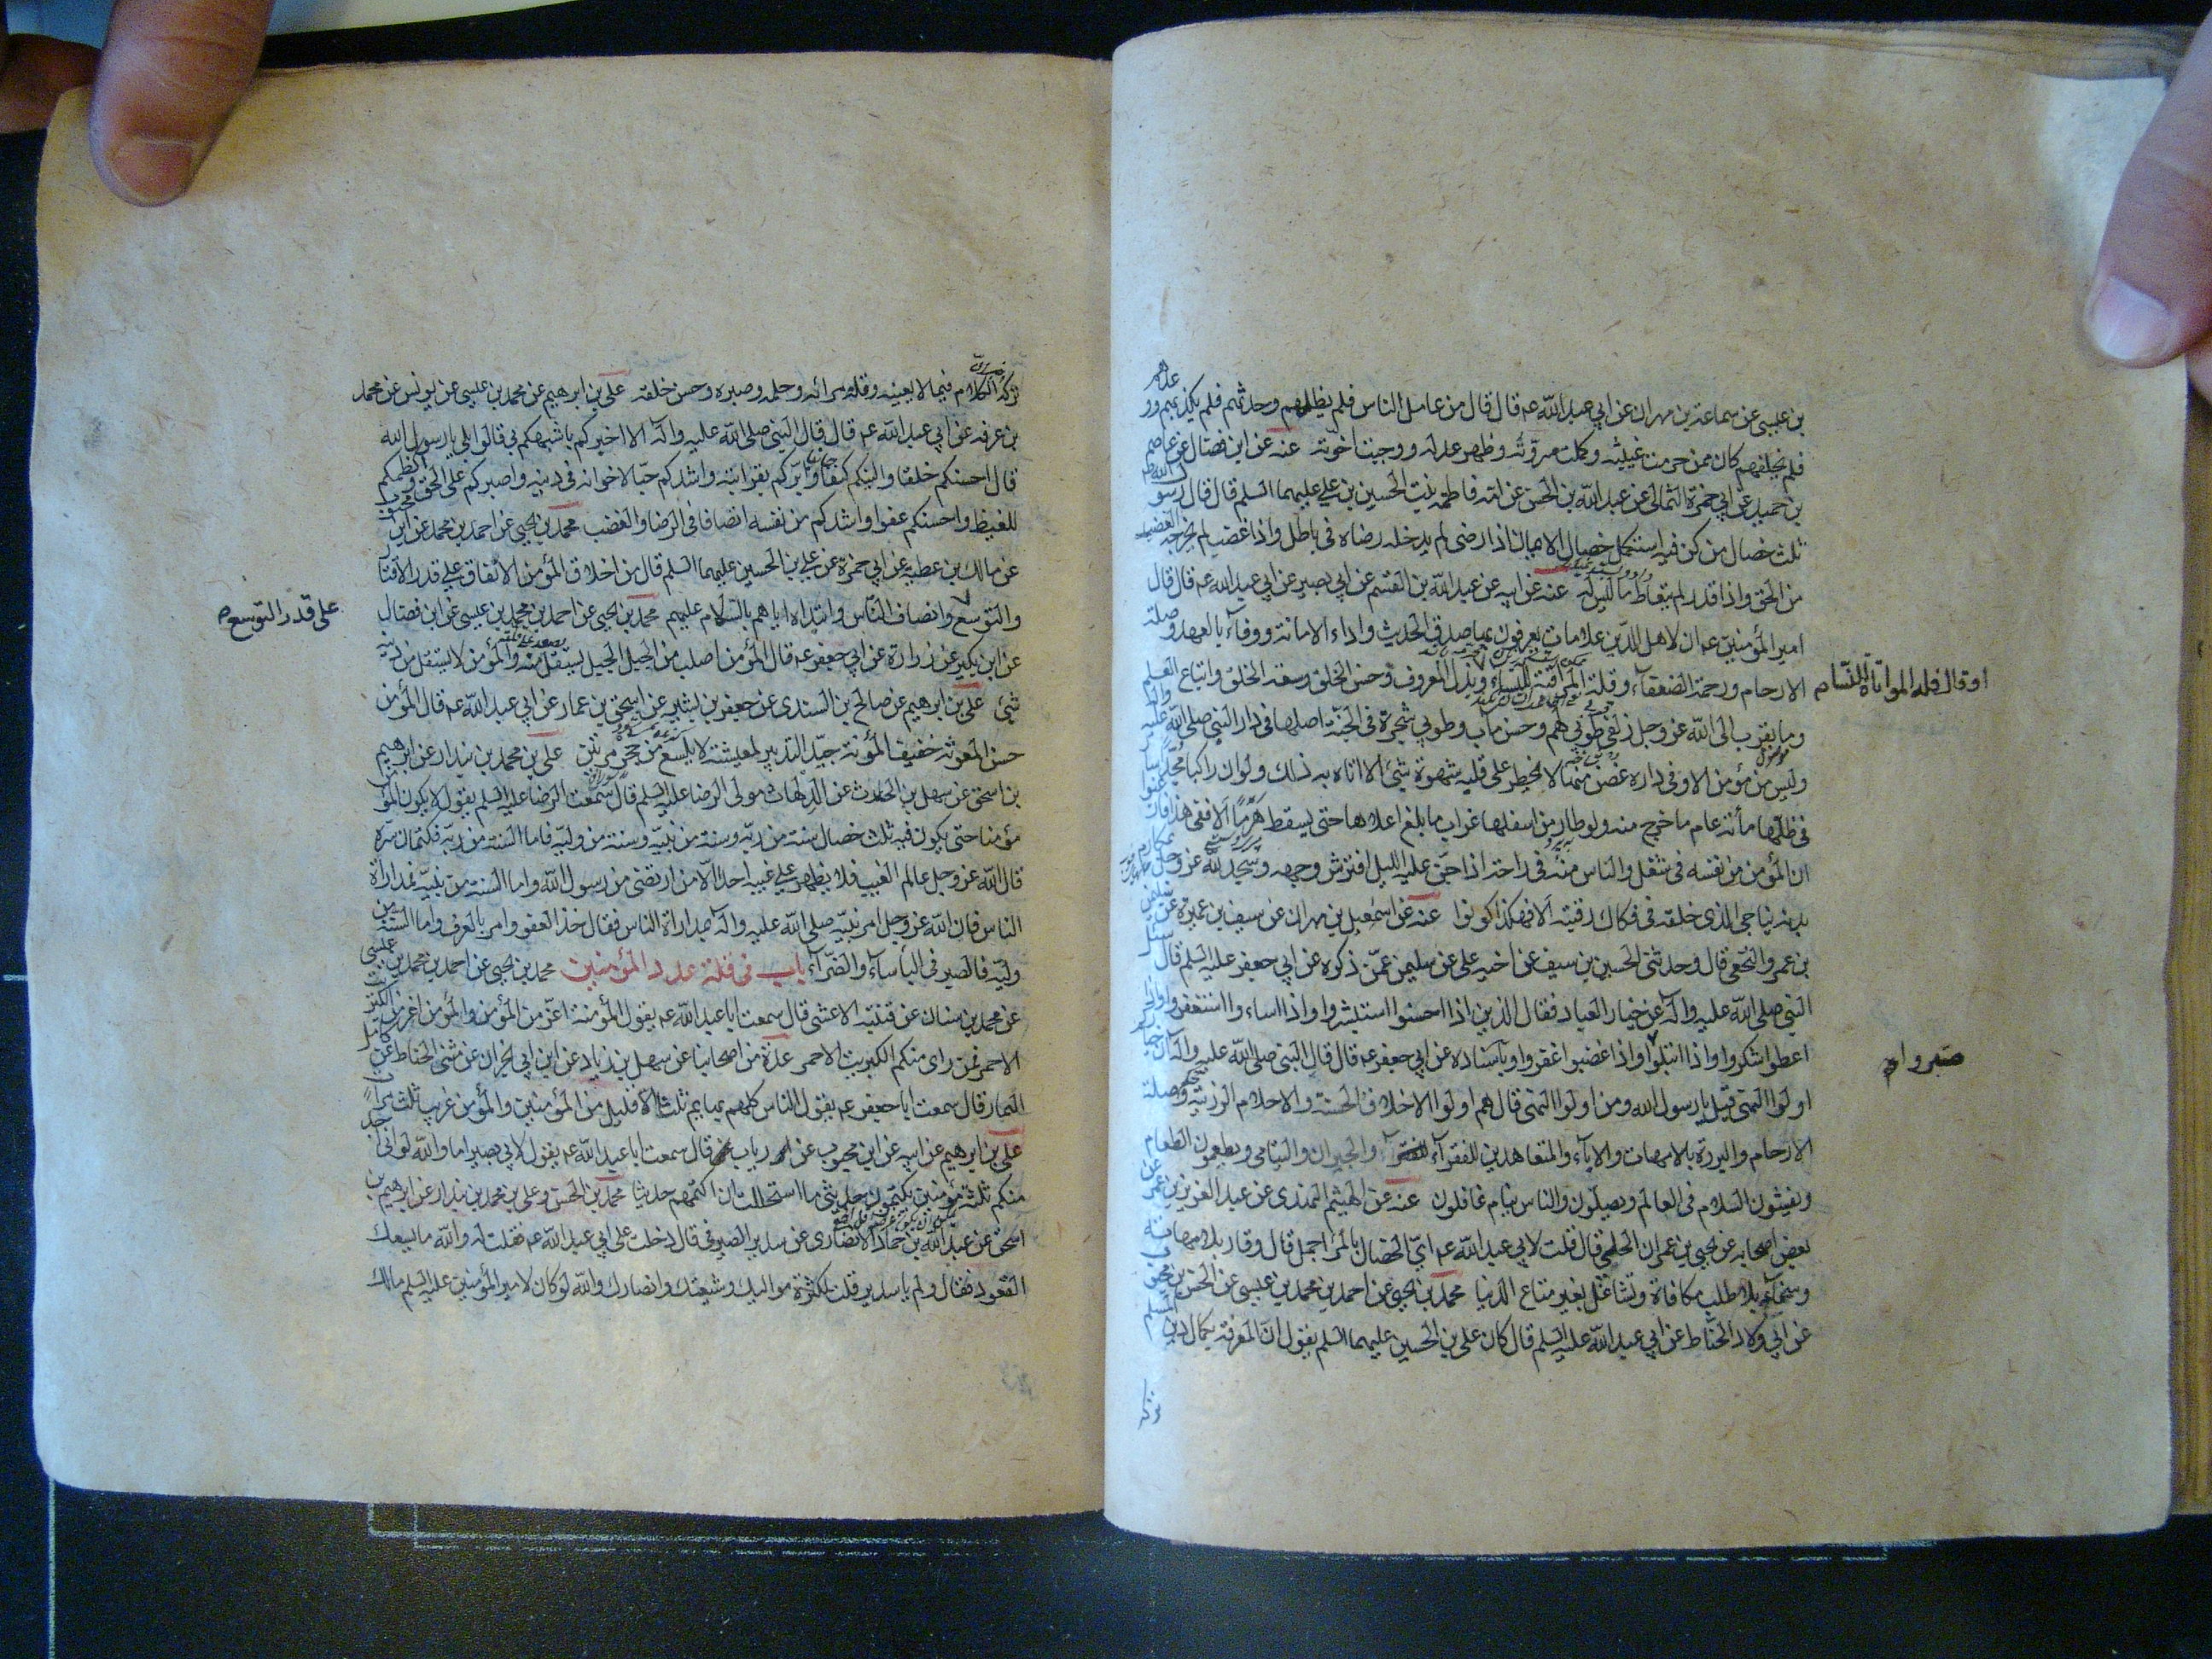 بن عيسى عن سماعة بن مهران عن ابى عبد الله عم قال قال من عامل الناس فلم يظلمهم وحدثهم فلم يكذبهم وو عدهم
فلم يخلفهم كان ممن حرمت غيبته وكملت مروّته وظهر عدله ووجبت اخوّته عنه عن ابن فضال عن عاصم
بن حميد عن ابى حمزة الثمالى عن عبد الله بن الحسن عن امه فاطمه بنت الحسين بن على عليهما السلم قال قال رسول الله
ثلث خصال من كن فيه استكمل خصال الايمان اذا رضى لم يدخله رضاه فى باطل واذا غضب لم يخرجه الغضب
من الحق واذا قدر لم يتعاط ما ليس له عنه عن ابيه عن عبد الله بن القسم عن ابى بصير عن ابى عبد الله عم قال قال
امير المؤمنين عم ان لاهل الدين علامات يعرفون بها صدق الحديث واداء الامانة ووفاء بالعهد وصلة
الارحام ورحمة الضعفاء وقلة المراقبة للنساء وبذل المعروف وحسن الخلق وسعة الخلق واتباع العلم
او قال قله المواتاة للنساء
وما يقرب الى الله عز وجل زلفى طوبى لهم وحسن مآب وطوبى شجرة فى الجنة اصلها فى دار النبى صلى الله عليه واله
وليس من مؤمن الا وفى داره غصن منها لا يخطر على قلبه شهوة شئ الا اتاه به ذلك ولو ان راكبا مجدا سار
فى ظلها مأته عام ما خرج منه ولو طار من اسفلها غراب ما بلغ اعلاها حتى يسقط هرما الا ففى هذا فارغبوا
ان المؤمن من نفسه فى شغل والناس منه فى راحة اذا جن عليه الليل افترش وجهه وسجد لله عز وجل بمكارم
بدنه يناجى الذى خلقه فى فكاك رقبته الا فهكذا كونوا عنه عن اسمعيل بن مهران عن سيف بن عميرة عن سليمن
بن عمرو النخعى قال وحدثنى الحسين بن سيف عن اخيه على عن سليمن عمن ذكره عن ابى جعفر عليه السلم قال سئل
النبى صلى الله عليه واله عن خيار العباد فقال الذين اذا احسنوا استبشروا واذا اساءوا استغفروا واذا
اعطوا شكروا واذا ابتلوا واذا غضبوا غفروا وباسناده عن ابى جعفر عم قال قال النبى صلى الله عليه واله ان خياركم
صبروا
اولوا النهى قيل يا رسول الله ومن اولوا النهى قال هم اولوا الاخلاق الحسنة والاحلام الرزينة وصلة
الارحام والبررة بالامهات والاباء والمتعاهدين للفقراء والجيران واليتامى ويطعمون الطعام
ويفشون السلام فى العالم ويصلون والناس نيام غافلون عنه عن الهيثم النهدى عن عبد العزيز بن عمر عن
بعض اصحابه عن يحيى بن عمران الحلبى قال قلت لابى عبد الله عم اىّ الخصال بالمرء اجمل قال وقار بلا مهابة
وسماح بلا طلب مكافاة وتشاغل بغير متاع الدنيا محمد بن يحيى عن احمد بن محمد بن عيسى عن الحسن بن محبوب
عن ابى ولاد الحناط عن ابى عبد الله عليه السلم قال كان على بن الحسين عليهما السلم يقول ان المعرفة بكمال دين المسلم
تركه
تركه الكلام فيما لا يعنيه وقلة مرائه وحلمه وصبره وحسن خلقه على بن ابرهيم عن محمد بن عيسى عن يونس عن محمد
بن عرفه عن ابى عبد الله عم قال قال النبى صلى الله عليه واله الا اخبركم باشبهكم بى قالوا بلى يا رسول الله
قال احسنكم خلقا والينكم كنفا وابرّكم بقرابته واشدكم حبا لاخوانه فى دينه واصبركم على الحق واكظمكم
للغيظ واحسنكم عفوا واشدكم من نفسه انصافا فى الرضا والغضب محمد بن يحيى عن احمد بن محمد عن ابن محبوب
عن مالك بن عطيه عن ابى حمزة عن على بن الحسين عليهما السلم قال من اخلاق المؤمن الانفاق على قدر الاقتار
والتوسع وانصاف الناس وابتداه اياهم بالسلام عليهم محمد بن يحيى عن احمد بن محمد بن عيسى عن ابن فضال
على قدر التوسع
عن ابن بكير عن زرارة عن ابى جعفر عم قال المؤمن اصلب من الجبل الجبل يستقل منه والمؤمن لا يستقل من دينه
شئ على بن ابرهيم عن صالح بن السندى عن جعفر بن بشير عن اسحق بن عمار عن ابى عبد الله عم قال المؤمن
حسن المعونة خفيف المؤنة جيّد التدبير لمعيشته لا يلسع من حجر مرتين على بن محمد بن بندار عن ابرهيم
بن اسحق عن سهل بن الحارث عن الدلهاث مولى الرضا عليه السلم قال سمعت الرضا عليه السلم يقول لا يكون المؤمن
مؤمنا حتى يكون فيه ثلث خصال سنة من ربه وسنة من نبيّه وسنة من وليّه فاما السنة من ربّه فكتمان سره
قال الله عز وجل عالم الغيب فلا يظهر على غيبه احدا الا من ارتضى من رسول الله واما السنة من نبيه فمداراة
الناس فان الله عز وجل امر نبيّه صلى الله عليه واله بمداراة الناس فقال خذ العفو وامر بالعرف واما السنة من
وليّه فالصبر فى الباساء والضراء باب فى قلة عدد المؤمنين محمد بن يحيى عن احمد بن محمد بن عيسى
عن محمد بن سنان عن قتيبة الاعشى قال سمعت ابا عبد الله عم يقول المؤمنة اعز من المؤمن والمؤمن اعز من الكبريت
الاحمر فمن راى منكم الكبريت الاحمر عدة من اصحابنا عن سهل بن زياد عن ابن ابى نجران عن مثنى الحناط عن كامل
التمار قال سمعت ابا جعفر عم يقول الناس كلهم بهايم ثلثا الا قليل من المؤمنين والمؤمن غريب ثلث مرات
على بن ابرهيم عن ابيه عن ابن محبوب عن ابن رياب قال سمعت ابا عبد الله عم يقول لابى بصير اما والله لو انى اجد
منكم ثلثة مؤمنين يكتمون حديثى ما استحللت ان اكتمهم حديثا محمد بن الحسن وعلى بن محمد بن بندار عن ابرهيم بن
اسحق عن عبد الله بن حماد الانصارى عن سدير الصيرفى قال دخلت على ابى عبد الله عم فقلت له والله ما يسعك
القعود فقال ولم يا سدير قلت لكثرة مواليك وشيعتك وانصارك والله لو كان لامير المؤمنين عليه السلم مالك